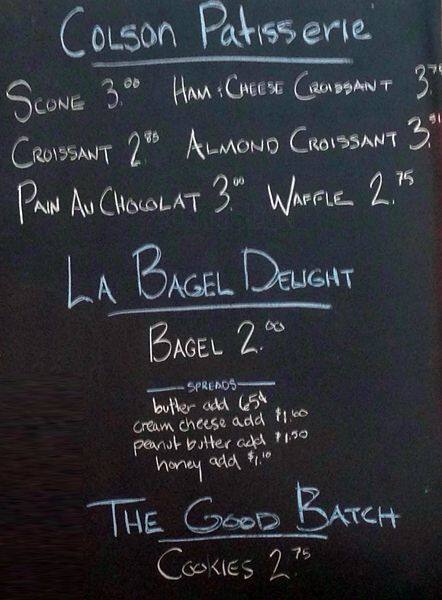 Colson Patisserie
Scone 3.00 Ham & Cheese Croissant
Croissant 2.85 Almond Croissant
Pain Au Chocolat 3.00 Waffle 2.75
La Bagel Delight
Bagel 2.00
Spreads
butter add 65¢
cream cheese add $1.60
peanut butter add $1.50
honey add $1.10
The Good Batch
Cookies 2.75